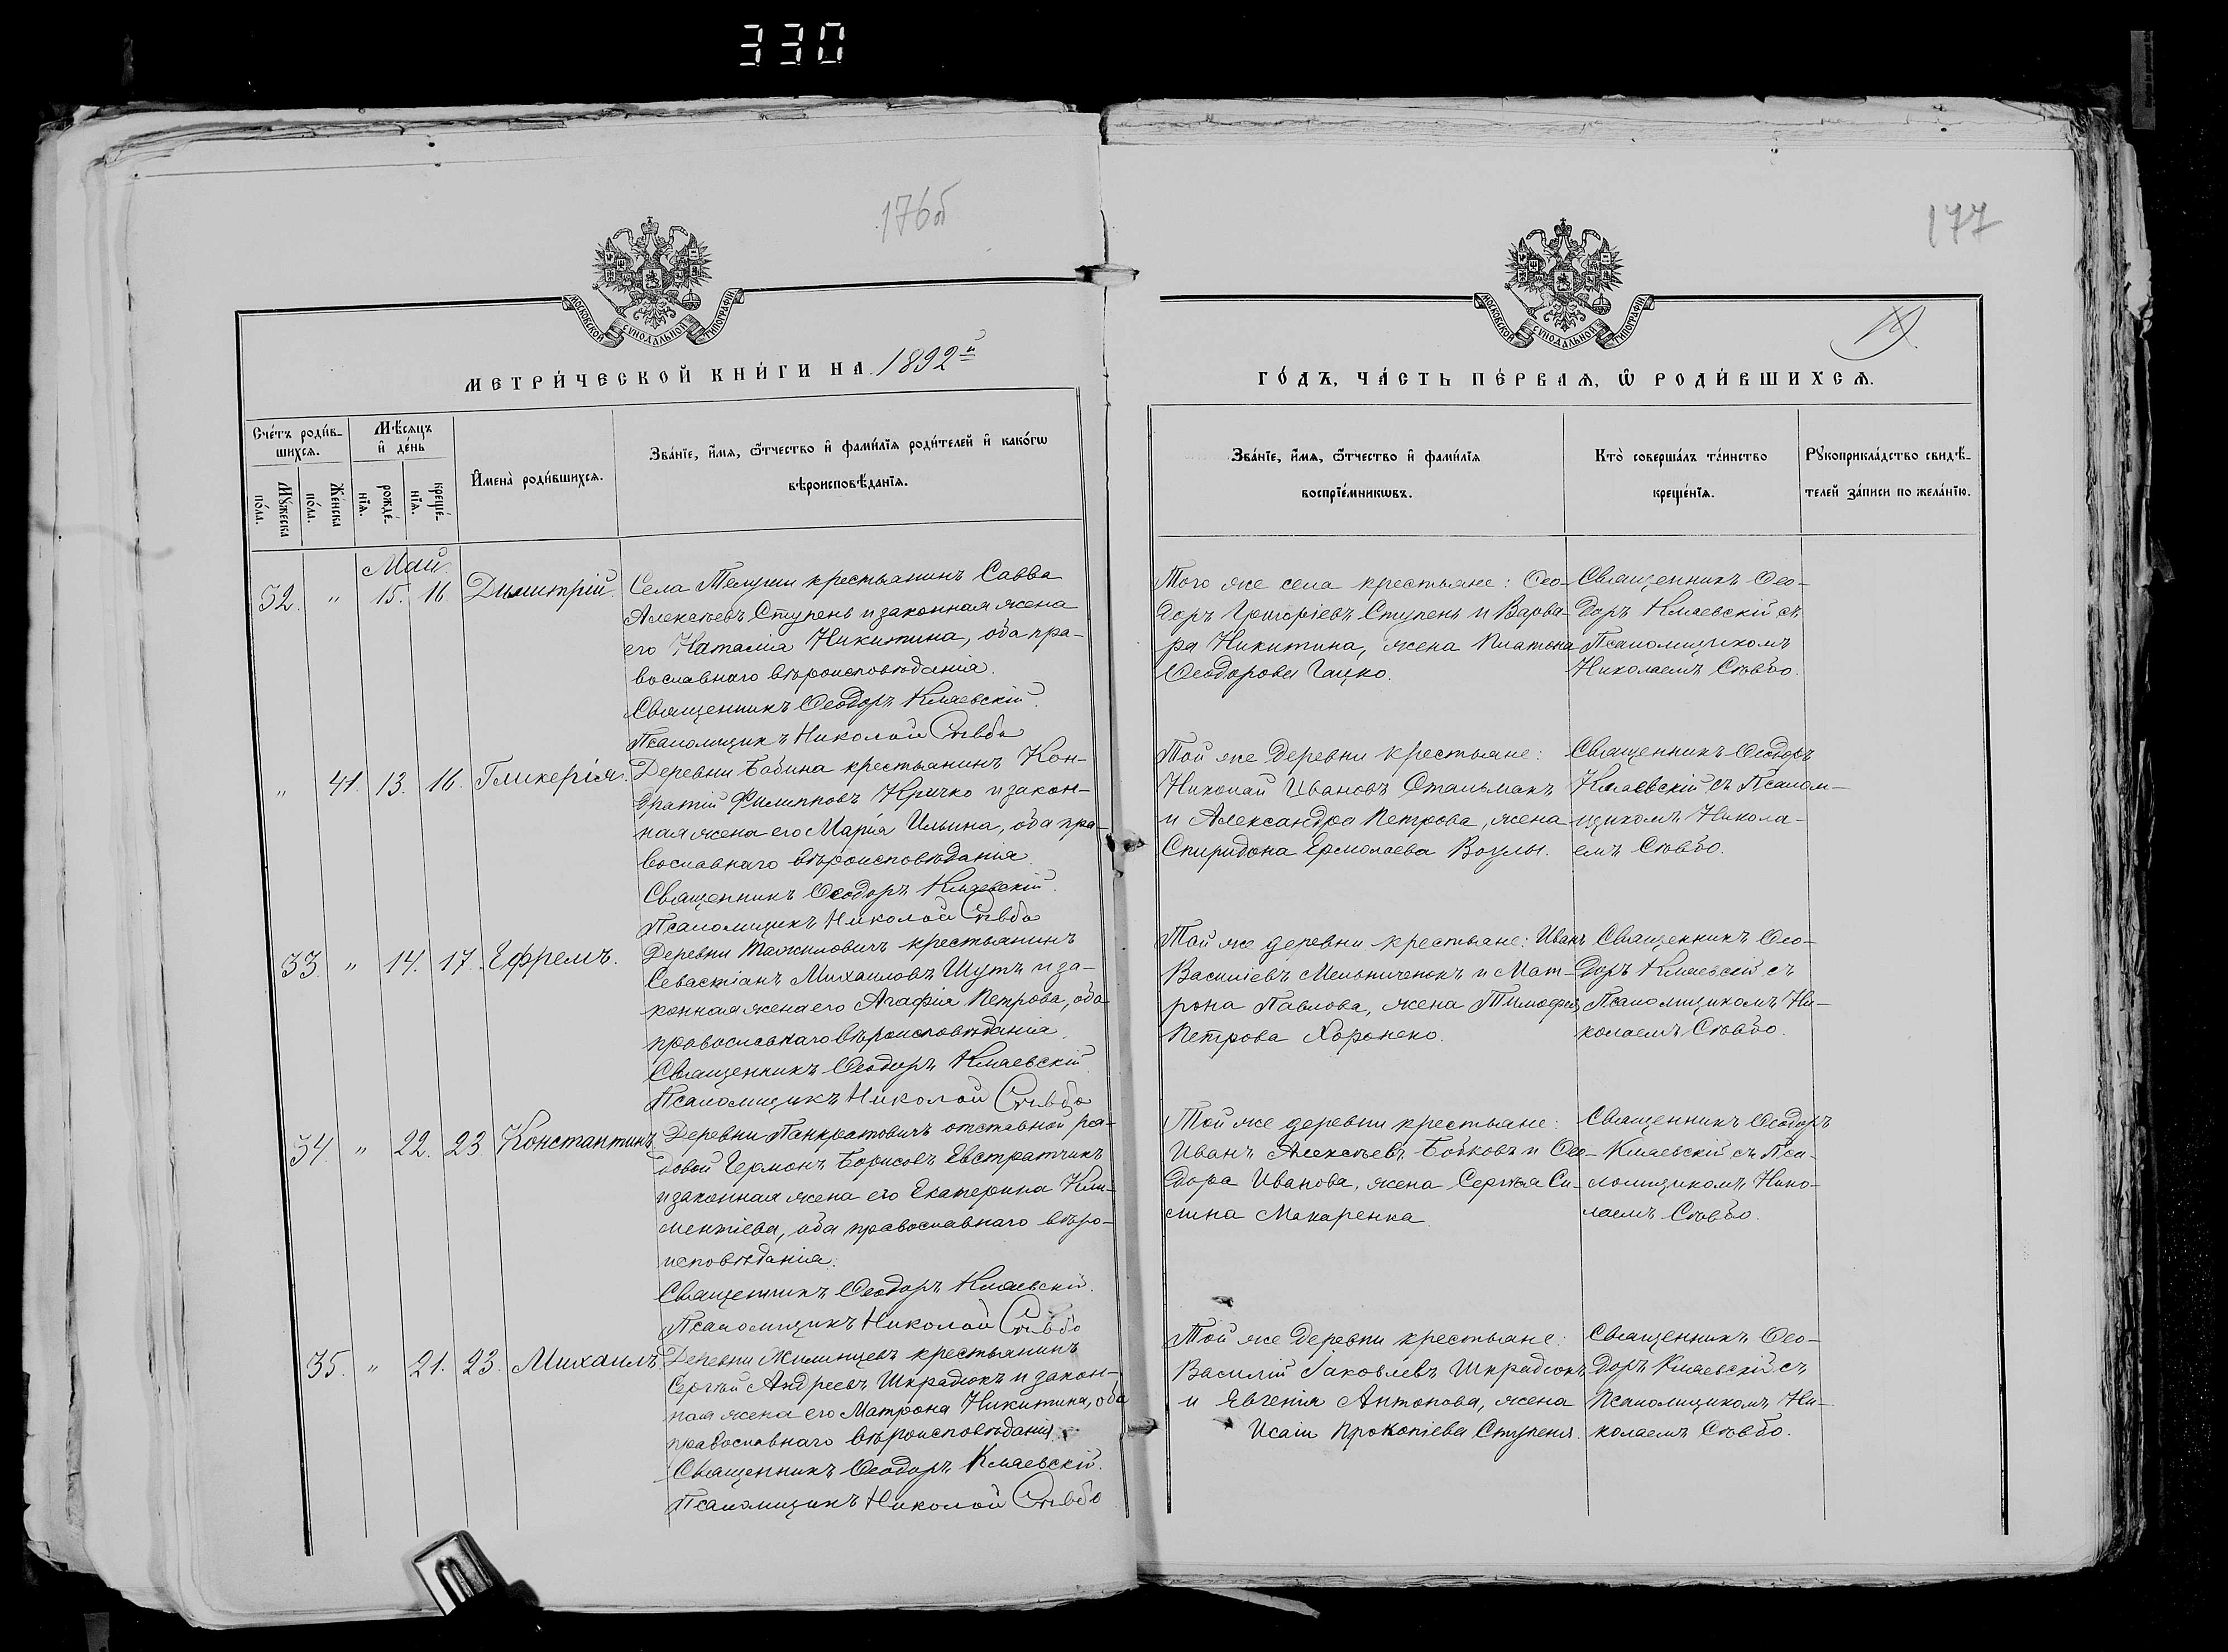 330
176б
177
МОСКОВСКОЙ СѴНОДАЛЬНОЙ ТИПОГРАФІИ
МОСКОВСКОЙ СѴНОДАЛЬНОЙ ТИПОГРАФІИ
МЕТРИ́ЧЕСКОЙ КНИ́ГИ НА 1892й
ГО́ДЪ, ЧА́СТЬ ПЕ́РВАѦ, Ѿ РОДИ́ВШИХСѦ.
Сче́тъ роди́в-
шихсѧ.
Мѣ́сѧцъ
и҆ де́нь
Мꙋжеска
по́ла.
Же́нска
по́ла.
рожде́-
нїѧ.
креще́-
нїѧ.
И҆мена̀ роди́вшихсѧ.
Зва́нїе, и҆́мѧ, ѻ҆́тчество и҆ фами́лїѧ роди́телей и҆ како́гѡ
вѣроисповѣ́данїѧ.
Зва́нїе, и҆́мѧ, ѻ҆́тчество и҆ фами́лїѧ
воспрїе́мникѡвъ.
Кто̀ соверша́лъ та́инство
креще́нїѧ.
Рꙋкоприкла́дство свидѣ́-
телей за́писи по жела́нїю.
Май
32. " 15. 16. Димитрій.
Села Телуши крестьянинъ Савва
Алексѣевъ Ступень и законная жена
его Наталія Никитина, оба пра-
вославнаго вѣроисповѣданія.
Священникъ Ѳеодоръ Кмаевскій.
Псаломщикъ Николай Сѣвбо
Того же села крестьяне: Ѳео-
доръ Григоріевъ Ступень и Варва-
ра Никитина, жена Платона
Ѳеодорова Гацко.
Священникъ Ѳео-
доръ Кмаевскій съ
Псаломщикомъ
Николаемъ Сѣвбо.
" 41. 13. 16. Гликерія.
Деревни Бабина крестьянинъ Кон-
дратій Филипповъ Кричко и закон-
ная жена его Марія Ильина, оба пра-
вославнаго вѣроисповѣданія.
Священникъ Ѳеодоръ Кмаевскій.
Псаломщикъ Николай Сѣвбо
Той же деревни крестьяне:
Николай Ивановъ Отальмахъ
и Александра Петрова, жена
Спиридона Ермолаева Возлы.
Священникъ Ѳеодоръ
Кмаевскій съ Псалом-
щикомъ Никола-
емъ Сѣвбо.
33. " 14. 17. Ефремъ.
Деревни Тажиловичъ крестьянинъ
Севастіанъ Михаиловъ Шутъ и за-
конная жена его Агафія Петрова, оба
православнаго вѣроисповѣданія.
Священникъ Ѳеодоръ Кмаевскій
Псаломщикъ Николай Сѣвбо
Той же деревни крестьяне: Иванъ
Василіевъ Мельниченокъ и Мат-
рона Павлова, жена Тимофея
Петрова Хоронеко.
Священникъ Ѳео-
доръ Кмаевскій съ
Псаломщикомъ Ни-
колаемъ Сѣвбо.
34. " 22. 23. Константинъ
Деревни Панкратовичъ отставной ря-
довой Германъ Борисовъ Евстратчикъ
и законная жена его Екатерина Кли-
ментіева, оба православнаго вѣро-
исповѣданія.
Священникъ Ѳеодоръ Кмаевскій.
Псаломщикъ Николай Сѣвбо
Той же деревни крестьяне:
Иванъ Алексѣевъ Бобковъ и Ѳео-
дора Иванова, жена Сергѣя Си-
лина Макаренка.
Священникъ Ѳеодоръ
Кмаевскій съ Пса-
ломщикомъ Нико-
лаемъ Сѣвбо.
35. " 21. 23. Михаилъ
Деревни Жилинцевъ крестьянинъ
Сергѣй Андреевъ Шкрадюкъ и закон-
ная жена его Матрона Никитина, оба
православнаго вѣроисповѣданія.
Священникъ Ѳеодоръ Кмаевскій.
Псаломщикъ Николай Сѣвбо
Той же деревни крестьяне:
Василій Іаковлевъ Шкрадюкъ
и Евгенія Антонова, жена
Исаіи Прокопіева Ступеня.
Священникъ Ѳео-
доръ Кмаевскій съ
Псаломщикомъ Ни-
колаемъ Сѣвбо.